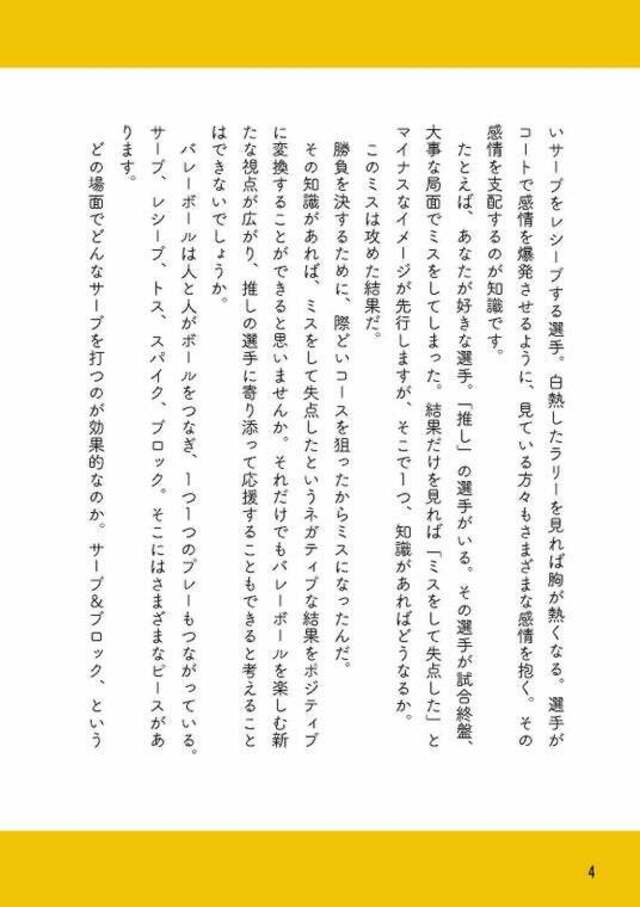 いサーブをレシーブする選手。白熱したラリーを見れば胸が熱くなる。選手が
コートで感情を爆発させるように、見ている方々もさまざまな感情を抱く。その
感情を支配するのが知識です。
たとえば、あなたが好きな選手。「推し」の選手がいる。その選手が試合終盤、
大事な局面でミスをしてしまった。結果だけを見れば「ミスをして失点した」と
マイナスなイメージが先行しますが、そこで1つ、知識があればどうなるか。
このミスは攻めた結果だ。
勝負を決するために、際どいコースを狙ったからミスになったんだ。
その知識があれば、ミスをして失点したというネガティブな結果をポジティブ
に変換することができると思いませんか。それだけでもバレーボールを楽しむ新
たな視点が広がり、推しの選手に寄り添って応援することもできると考えること
はできないでしょうか。
バレーボールは人と人がボールをつなぎ、1つ1つのプレーもつながっている。
サーブ、レシーブ、トス、スパイク、ブロック。そこにはさまざまなピースがあ
ります。
どの場面でどんなサーブを打つのが効果的なのか。サーブ&ブロック、という
4